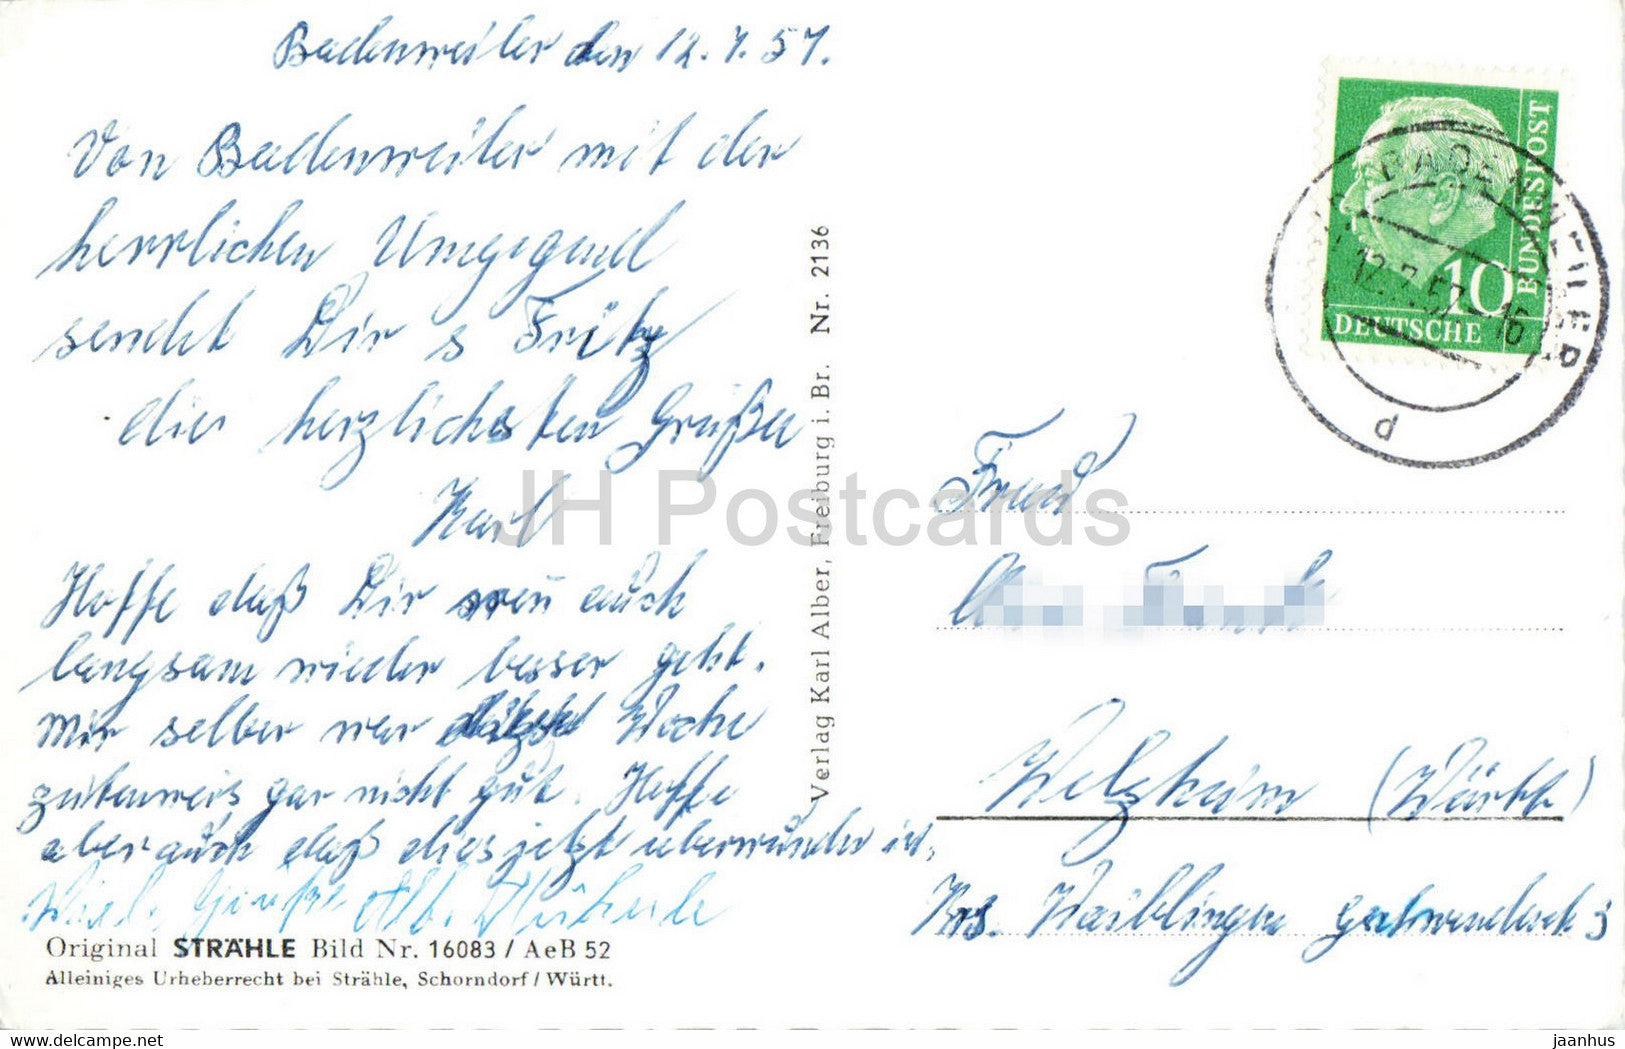 Badenweiler den 12.7.57.
Von Badenweiler mit der
herrlichen Umgegend
sendet Dir s Fritz
die herzlichsten Grüße
Karl
Hoffe daß Dir auch
langsam wieder besser geht.
Mir selber war Woche
zeitenweis gar nicht gut. Hoffe
aber auch daß dies jetzt überwunden ist.
Viele Grüße
Original STRÄHLE Bild Nr. 16083 / AeB 52
Alleiniges Urheberrecht bei Strähle, Schorndorf / Württ.
Verlag Karl Alber, Freiburg i. Br. Nr. 2136
BADENWEILER
12.7.57-16
d
10
BUNDESPOST
DEUTSCHE
JH Postcards
Welzheim (Württ)
Krs. Waiblingen
Delcampe.net
jaanhus